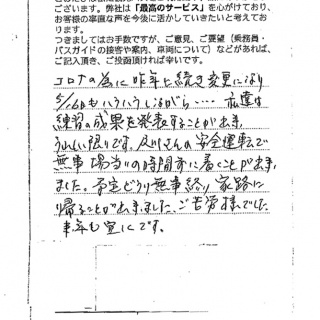 ございます。弊社は「最高のサービス」を心がけており、
お客様の率直な声を今後に活かしていきたいと考えてお
ります。
つきましてはお手数ですが、ご意見、ご要望(乗務員・
バスガイドの接客や案内、車両について)などがあれば、
ご記入頂き、ご投函頂ければ幸いです。
コロナの為に昨年に続き変更になり
ハラハラしながら・・・・ 私達は
練習の成果を発表することが出来、
うれしい限りです。 さんの安全運転で
無事 場当りの時間前に着くことが出来
ました。予定どうり無事終り 家路に
帰ることが出来ました。ご苦労様でした
来年も宜しくです。